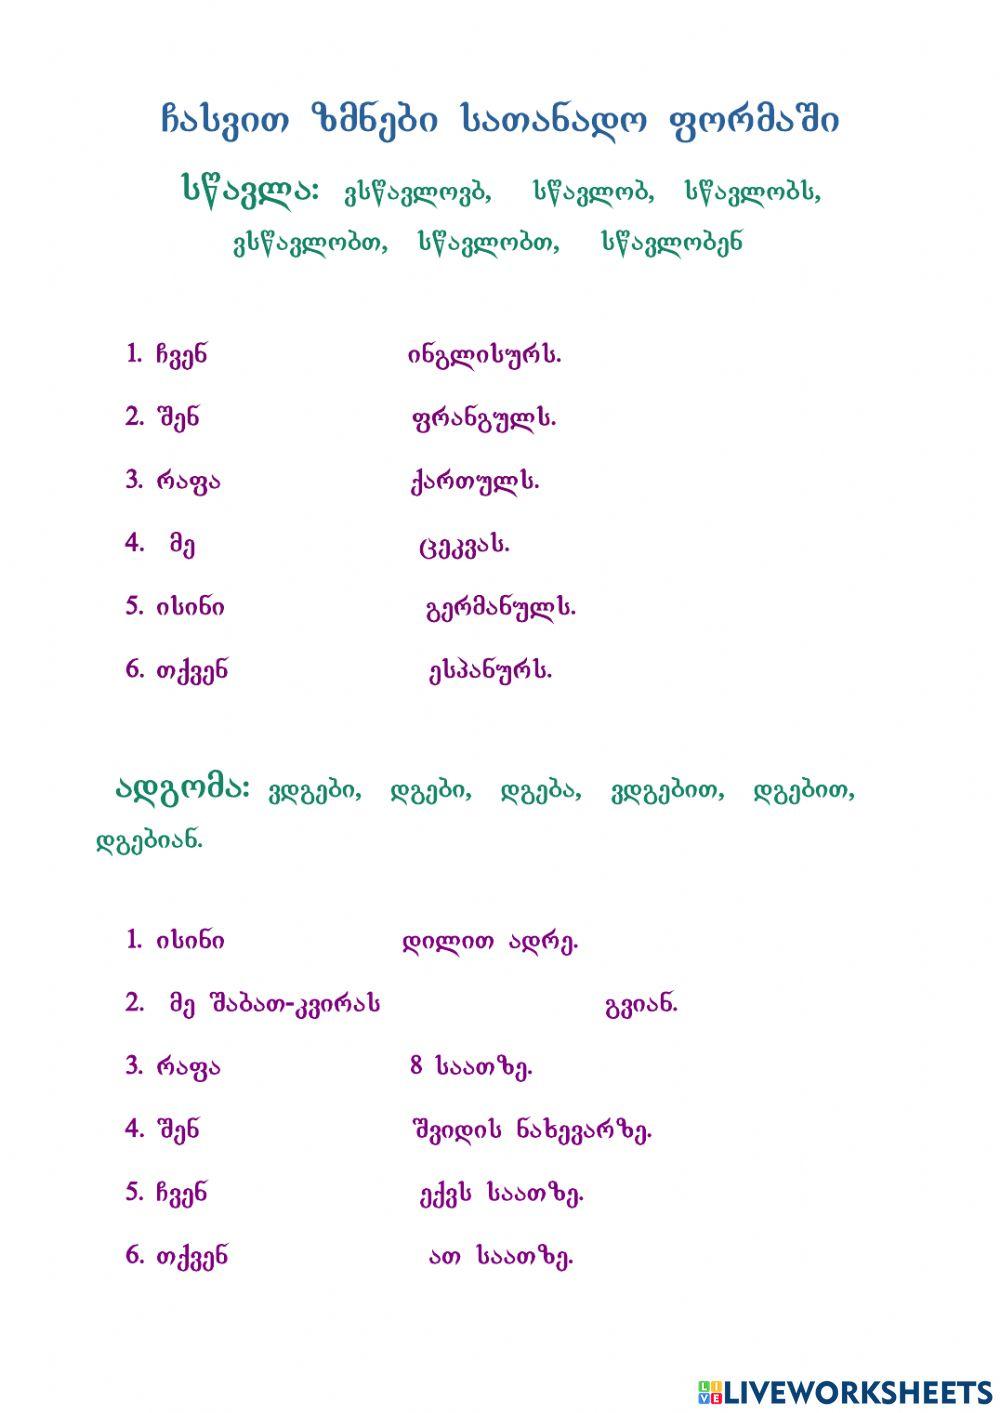 ჩასვით ზმნები სათანადო ფორმაში
სწავლა: ვსწავლოვბ, სწავლობ, სწავლობს,
ვსწავლობთ, სწავლობთ, სწავლობენ
1. ჩვენ ინგლისურს.
2. შენ ფრანგულს.
3. რაფა ქართულს.
4. მე ცეკვას.
5. ისინი გერმანულს.
6. თქვენ ესპანურს.
ადგომა: ვდგები, დგები, დგება, ვდგებით, დგებით,
დგებიან.
1. ისინი დილით ადრე.
2. მე შაბათ-კვირას გვიან.
3. რაფა 8 საათზე.
4. შენ შვიდის ნახევარზე.
5. ჩვენ ექვს საათზე.
6. თქვენ ათ საათზე.
LIVE LIVEWORKSHEETS